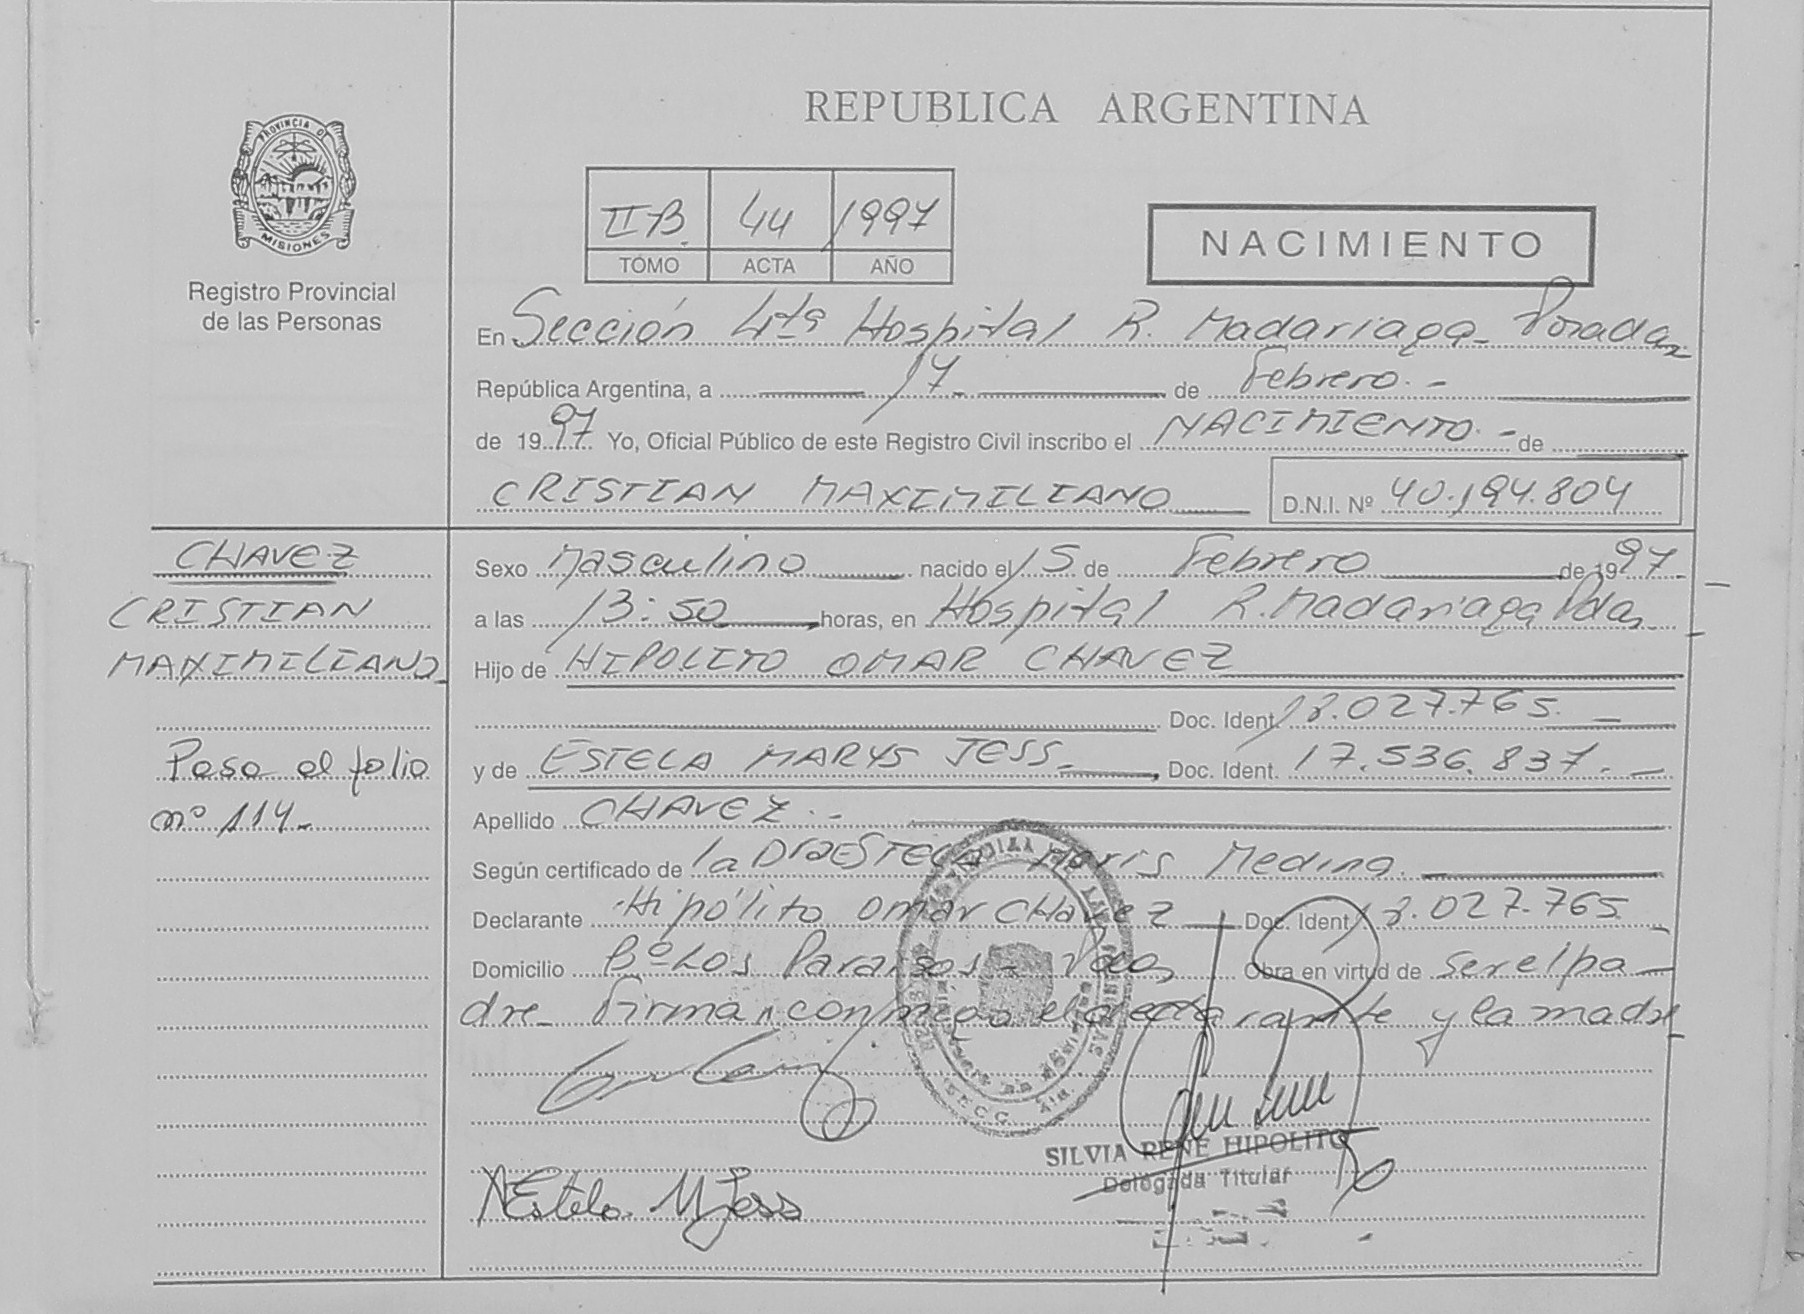 PROVINCIA DE
MISIONES
Registro Provincial
de las Personas
REPUBLICA ARGENTINA
II B. 44 1997
TOMO ACTA AÑO
NACIMIENTO
En Sección 4ta Hospital R. Madariaga - Posadas
República Argentina, a 17 de Febrero. -
de 1997. Yo, Oficial Público de este Registro Civil inscribo el NACIMIENTO. - de
CRISTIAN MAXIMILIANO D.N.I. Nº 40.194.804
CHAVEZ
CRISTIAN
MAXIMILIANO
Pasa al folio
nº 114-
Sexo Masculino nacido el 15 de Febrero de 1997.
a las 13:50 horas, en Hospital R. Madariaga Pdas
Hijo de HIPOLITO OMAR CHAVEZ
Doc. Ident. 18.027.765. -
y de ESTELA MARYS JESS. Doc. Ident. 17.536.837. -
Apellido CHAVEZ. -
Según certificado de la Dra ESTELA Maris Medina.
Declarante Hipólito Omar CHavez Doc. Ident. 18.027.765
Domicilio Bº Los Paraisos - Pdas Obra en virtud de ser el pa-
dre - Firman conmigo el declarante y la madre
SILVIA RENE HIPOLITO
Delegada Titular
Estela M Jess